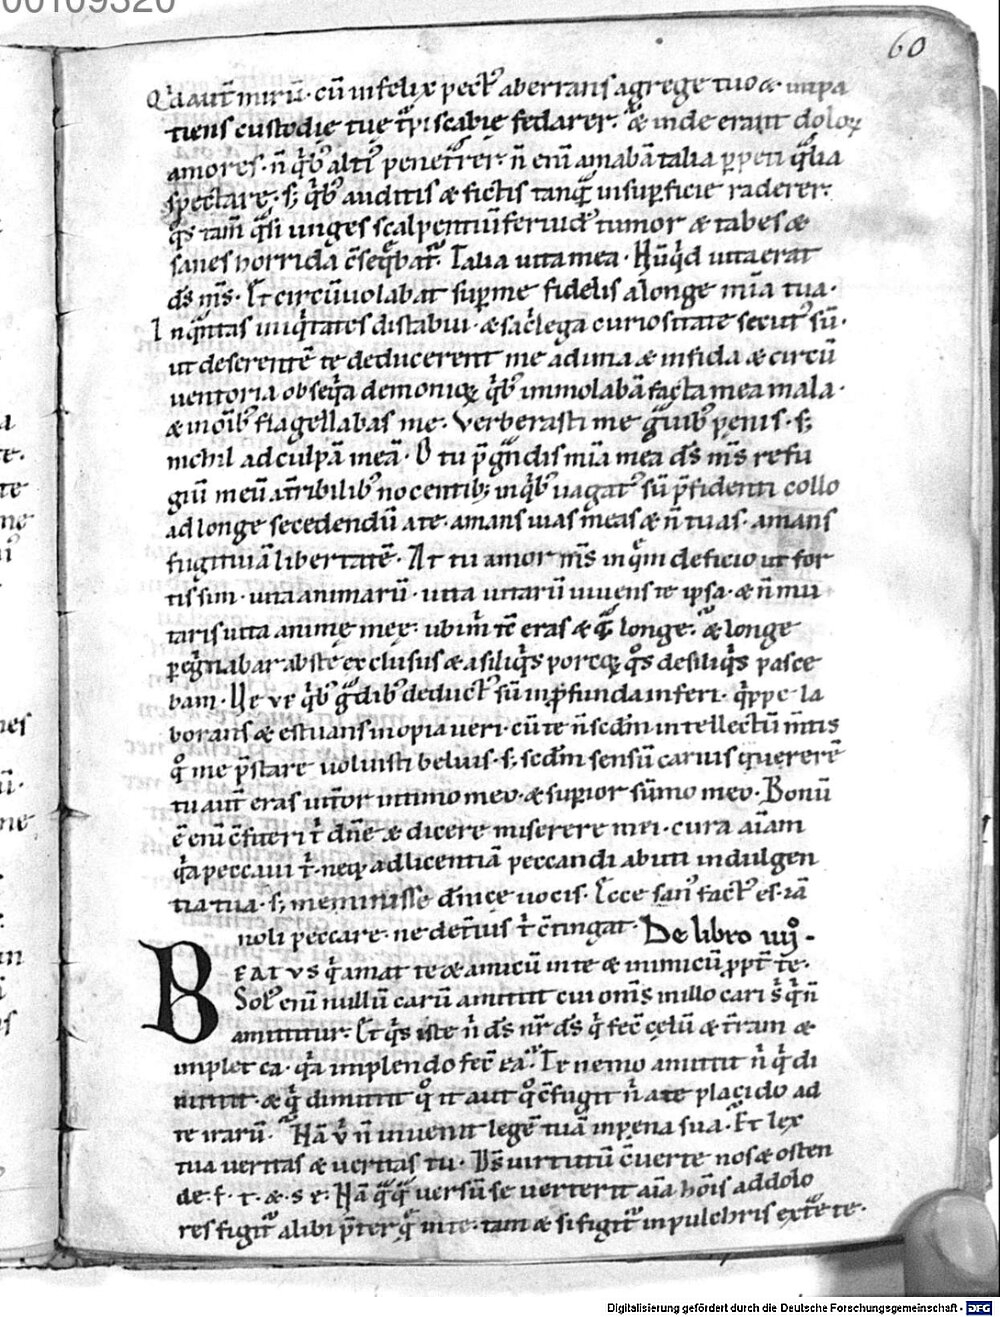 00109320
60
Qd aut̄ mirū. cū infelix pecꝰ aberrans a grege tuo & inpa
tiens custodię tue t̄pi scabie fedarer. & inde erant doloꝝ
amores. n̄ qͥbꝰ altiꝰ penetrer. n̄ enī amabā talia ꝑpeti qͣlia
spectare. s; qͥbꝰ auditis & fictis tanqͣ̄ in suꝑficie raderer.
qͦs tam̄ qͣsi unges scalpentiū feruidꝰ tumor & tabes &
sanies horrida c̄seqͤbatͬ. Talia uita mea. Nūqͥd uita erat
ds̄ ms̄. Et circūuolabat suꝑ me fidelis a longe mīa tua.
In qͣntas iniqͥtates distabui. & sacͥlega curiositate secutꝰ sū.
ut deserentē te deducerent me ad ima & infida & circū
uentoria obseqͥa demonioꝝ qͥbꝰ immolabā facta mea mala.
& in oīibꝰ flagellabas me. Verberasti me gͣuibꝰ penis. s;
nichil ad culpā meā. O tu p̄gͣndis mīa mea ds̄ ms̄ refu
giū meū a t̄ribilibꝰ nocentib; in qͥbꝰ uagatꝰ sū p̄fidenti collo
ad longe secedendū a te. amans uias meas & n̄ tuas. amans
fugitiuā libertatē. At tu amor ms̄ in qͤm deficio ut for
tis sim. uita animarū. uita uitarū uiuens te ipsa. & n̄ mu
taris uita anime męę. ubi m̄ tē eras & qͣ̄ longe. & longe
ꝑegͥnabar abs te exclusus & a siliqͥs porcoꝝ qͦs de siliqͥs pasce
bam. Ve ve qͥbꝰ gͣdibꝰ deductꝰ sū in ꝓfunda inferi. qͥppe la
borans & estuans inopia ueri. cū te n̄ scdm̄ intellectū m̄tis
qͦ me p̄stare uoluisti beluis. s; scdm̄ sensū carnis quererē
tu aut̄ eras int̄ior intimo meo. & suꝑior sūmo meo. Bonū
ē enī c̄fiteri t̄ dn̄e & dicere miserere mei. cura aīam
qͥa peccaui t̄. neqꝫ ad licentiā peccandi abuti indulgen
tia tua. s; meminisse dn̄ice uocis. Ecce sanꝰ factꝰ es. iā
noli peccare. ne det̄ius t̄ c̄tingat. De libro iiijͦ.
BEATVS qͥ amat te & amicū in te & inimicū ꝓpt̄ te.
Solꝰ enī nullū carū amittit cui om̄s in illo cari st̄ qͥ n̄
amittitur. Et qͥs iste n̄ ds̄ nr̄ ds̄ qͥ fec̄ cęlū & t̄ram &
implet ea. qͥa implendo fec̄ ea. Te nemo amittit n̄ qͥ di
mittit. & qͥ dimittit qͦ it aut qͦ c̄fugit n̄ a te placido ad
te iratū. Nā ubi n̄ inuenit legē tuā in pena sua. Et lex
tua ueritas & ueritas tu. Ds̄ uirtutū c̄uerte nos & osten
de. f. t. & s. e. Nā qͣqͣ uersū se uerterit aīa hoīs ad dolo
res figitͬ alibi p̄terqͣ in te. tam & si figitͬ in pulchris ext̄ te.
Digitalisierung gefördert durch die Deutsche Forschungsgemeinschaft - DFG